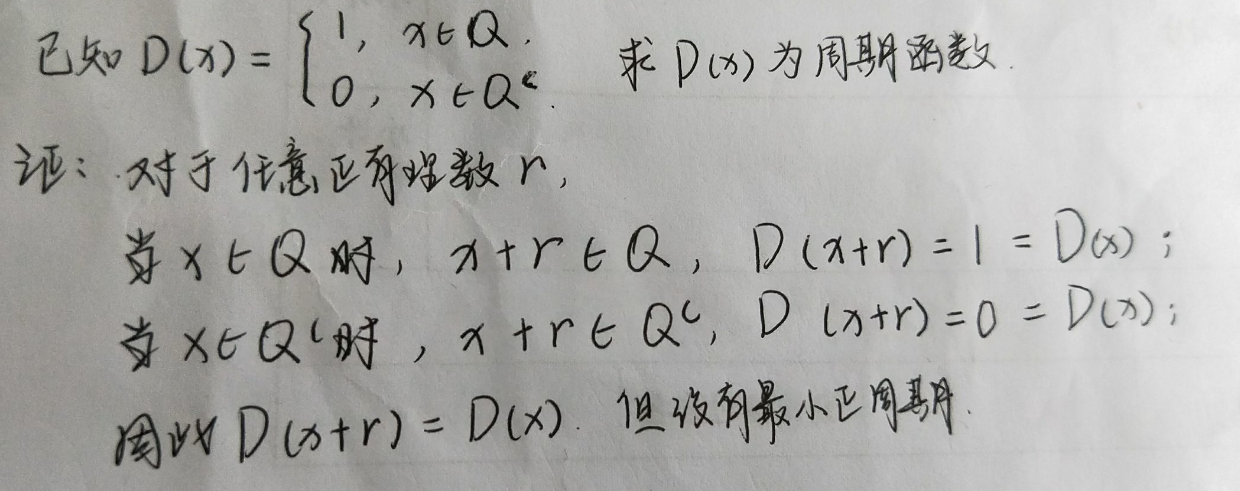 已知 D(x) = { 1, x∈Q. 0, x∈Qᶜ. 求 D(x) 为周期函数.
证: 对于任意正有理数 r,
当 x∈Q 时, x+r∈Q, D(x+r)=1=D(x);
当 x∈Qᶜ时, x+r∈Qᶜ, D(x+r)=0=D(x);
因此 D(x+r)=D(x). 但没有最小正周期.